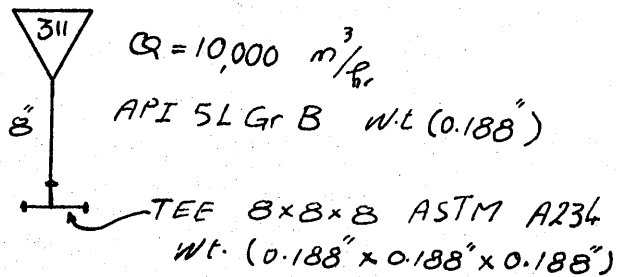 311
Q = 10,000 m³/hr
8"
API 5L Gr B W.t (0.188")
TEE 8x8x8 ASTM A234
Wt. (0.188" x 0.188" x 0.188")